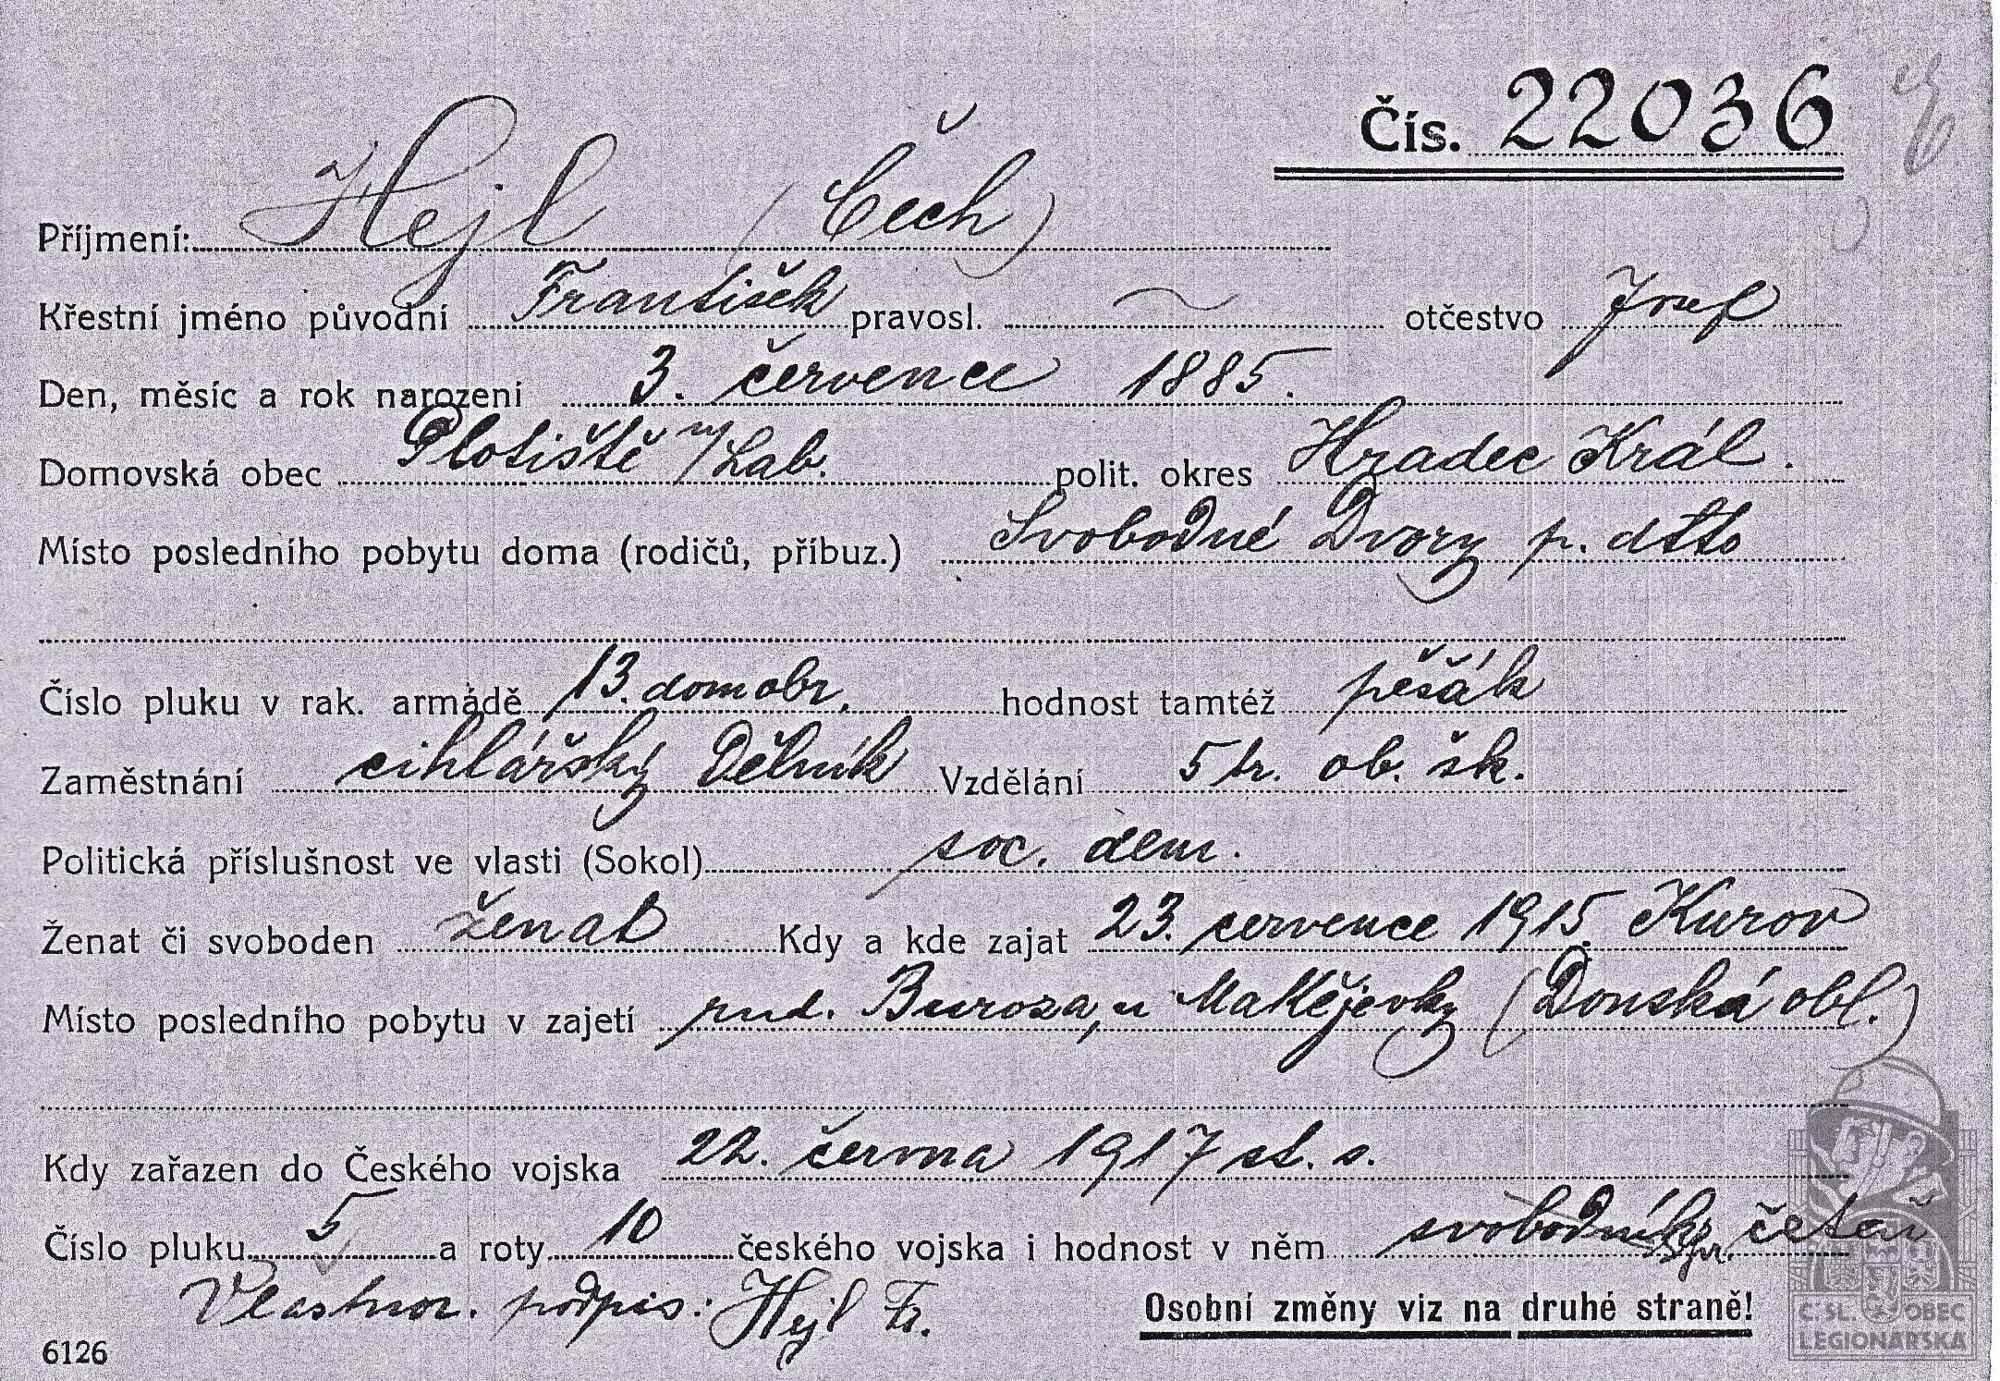 Čís. 22036
Příjmení: Hejl (Čech)
Křestní jméno původní František pravosl. — otčestvo Josef
Den, měsíc a rok narození 3. července 1885.
Domovská obec Plotiště n/Lab. polit. okres Hradec Král.
Místo posledního pobytu doma (rodičů, příbuz.) Svobodné Dvory p. dtto
Číslo pluku v rak. armádě 13. domobr. hodnost tamtéž pěšák
Zaměstnání cihlářský dělník Vzdělání 5 tr. ob. šk.
Politická příslušnost ve vlasti (Sokol) soc. dem.
Ženat či svoboden ženat Kdy a kde zajat 23. července 1915. Kurov
Místo posledního pobytu v zajetí rud. Buroza, u Makějevky (Donská obl.)
Kdy zařazen do Českého vojska 22. června 1917 st. s.
Číslo pluku 5 a roty 10 českého vojska i hodnost v něm svobodník četař
Vlastnor. podpis: Hejl Fr.
Osobní změny viz na druhé straně!
6126
Č. SL. OBEC
LEGIONÁŘSKÁ